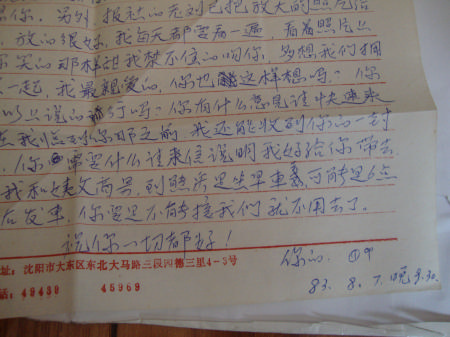 你。另外,报社的老刘已把放大的照片给
放的很好,我每天都要看一遍,看着照片上
你笑的那样甜我禁不住的吻你,多想我们拥
一起,我最亲爱的,你也这样想吗?你
以上说的都行吗?你有什么意见请快速来
在我临到你那之前,我还能收到你的一封
你需要什么请来信说明我好给你带去。
我和 文商量到 是坐早车 可能是6点
后发车,你要是不能接我们就不用去了。
祝你一切都好!
你的
83. 8. 7. 晚9.30.
址:沈阳市大东区东北大马路三段 德三里4-3号
话:49489 45969